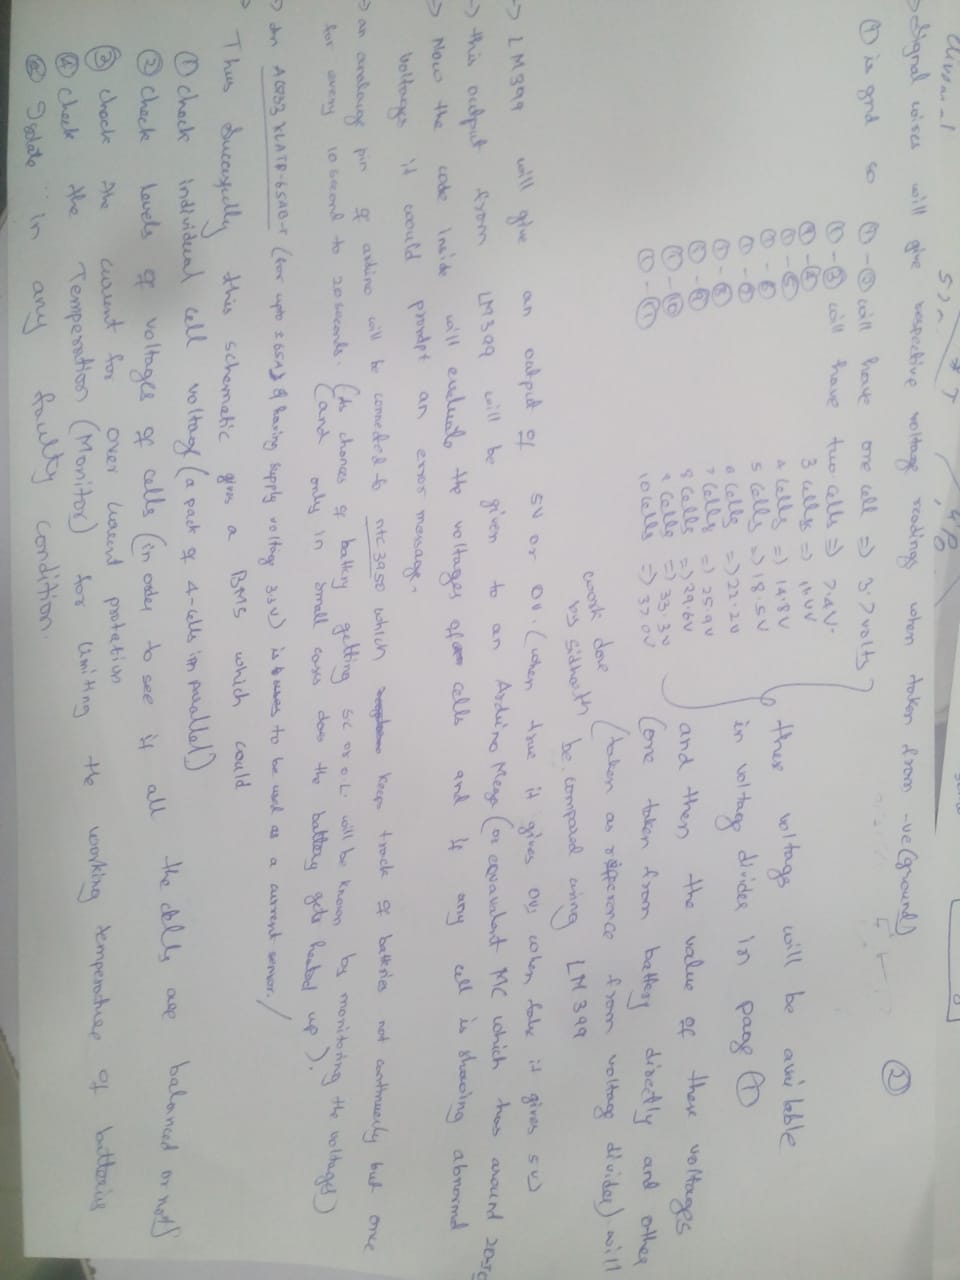 → Signal wires will give respective voltage readings when taken from -ve (ground)
②
① is gnd so ① - ② will have one cell => 3.7 volts
① - ③ will have two cells => 7.4V
① - ④ 3 cells =>
① - ⑤ 4 cells => 14.8V
① - ⑥ 5 cells => 18.5V
① - ⑦ 6 cells => 22.2V
① - ⑧ 7 cells => 25.9V
① - ⑨ 8 cells => 29.6V
① - ⑩ 9 cells => 33.3V
① - ⑪ 10 cells => 37.0V
these voltags will be available
in voltag divider in page ①
and then the value of these voltages
(one taken from battery directly and other
(taken as refference from voltage divider) will
be compared using LM399
work done
by Sidharth
→ LM399 will give an output of 5V or 0V. (when true it gives 0V, when false it gives 5V)
→ this output from LM399 will be given to an Arduino Mega (or equavalent MC which has around
→ Now the code inside will evaluate the voltages of cells and if any cell is showing abnormal
voltages it would prompt an error message.
→ an analouge pin of arduino will be connected to ntc 3950 which keep track of battries not continuesly but once
for every 10 second to 20 seconds. (As chances of battery getting SC or O.L. will be known by monitoring the voltages)
(and only in small cases does the battery gets heated up).
→ An (for upto ± 65A) & having supply voltage 3.3V) is to be used as a current sensor.
→ Thus Sucessfully this schematic gives a BMS which could
① check individual cell voltage (a pack of 4-cells in parallel)
② check levels of voltages of cells (in order to see if all the cells are balanced or not)
③ check the current for over current protation
④ check the Temperation (Monitor) for limiting the working temperature of batteries
⑤ Isolate in any faulty condition.